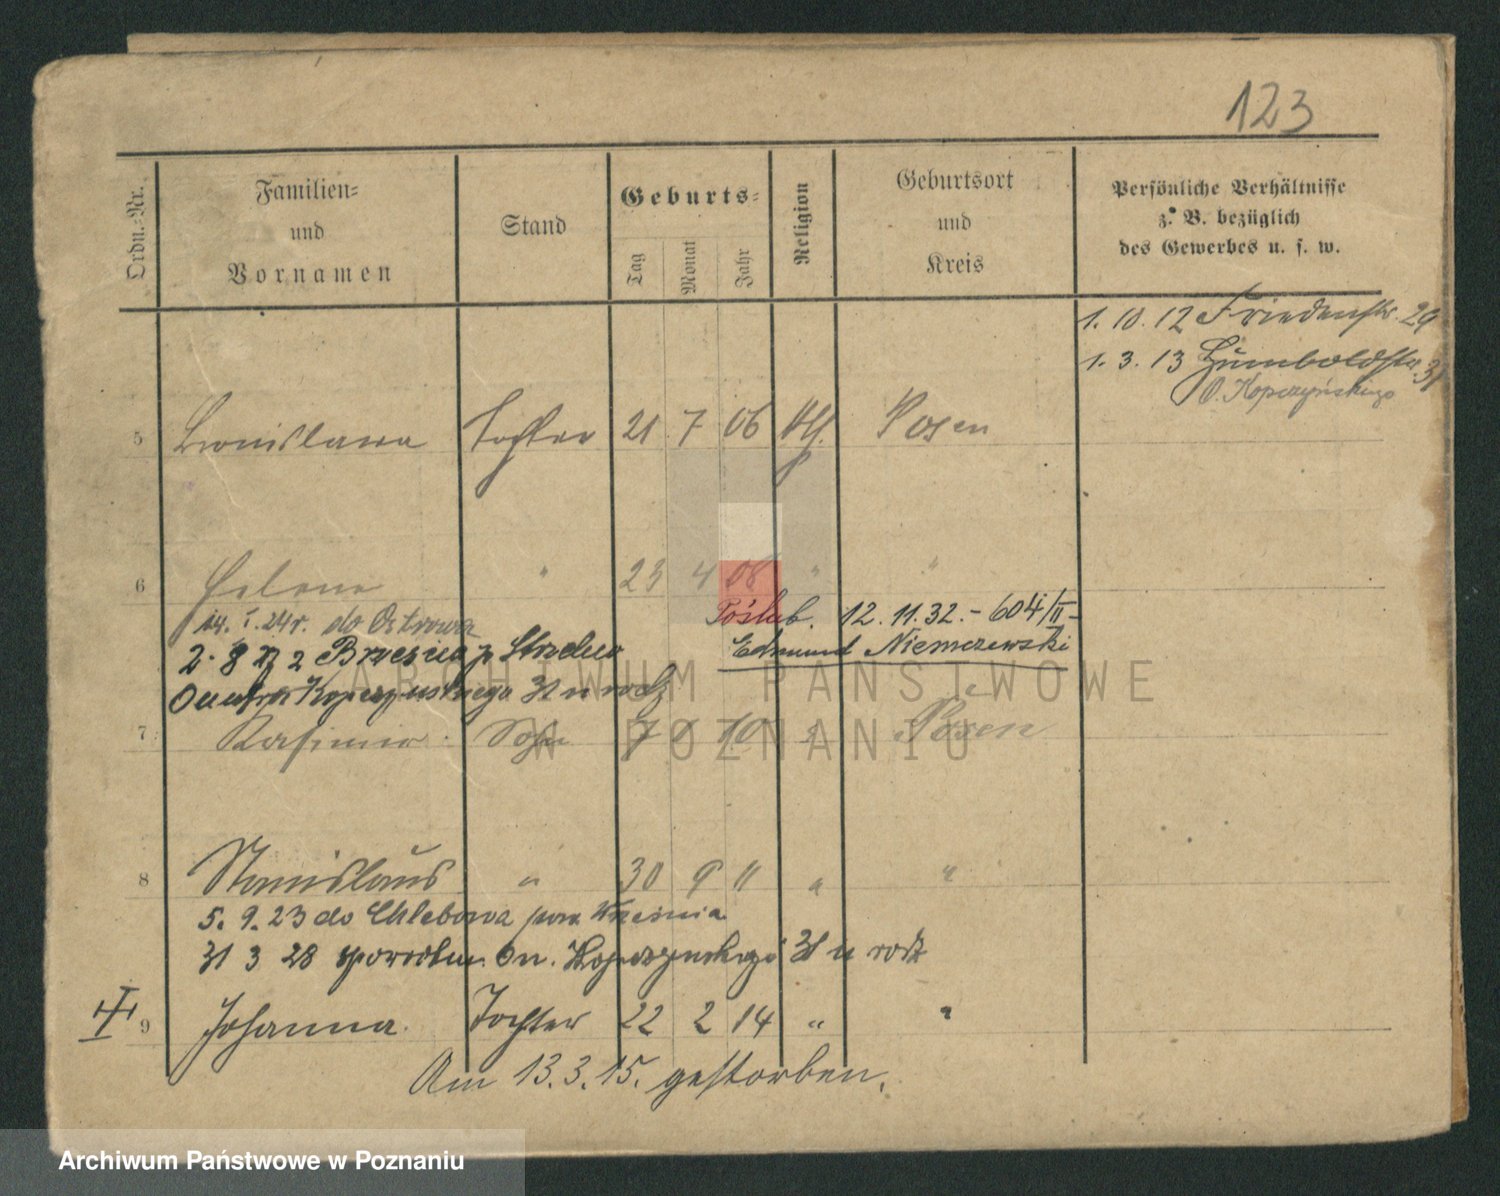 123
Ordn.-Nr.
Familien-
und
Vornamen
Stand
Geburts-
Tag
Monat
Jahr
Religion
Geburtsort
und
Kreis
Persönliche Verhältnisse
z. B. bezüglich
des Gewerbes u. s. w.
1. 10. 12 Friedenstr. 29
1. 3. 13 Humboldstr. 31
O. Kopczyńskiego
5 Bronislawa Tochter 21 7 06 kth. Posen
6 Helene " 23 4 08 " "
14. I. 24r. do Ostrowa
Poślub. 12. 11. 32. - 604/II -
2. 8 27 z Brzezia p Strzelno
Edmund Niemczewski
Kopczynskiego 31 u rodz
7 Kasimir Sohn 7 10 " Posen
8 Stanislaus " 30 9 11 " "
5. 9. 23 do Chlebowa pow Września
31 3 28 On. Kopczynskiego 31 u rodz
9 Johanna. Tochter 22 2 14 " "
Am 13. 3. 15. gestorben.
ARCHIWUM PAŃSTWOWE
W POZNANIU
Archiwum Państwowe w Poznaniu